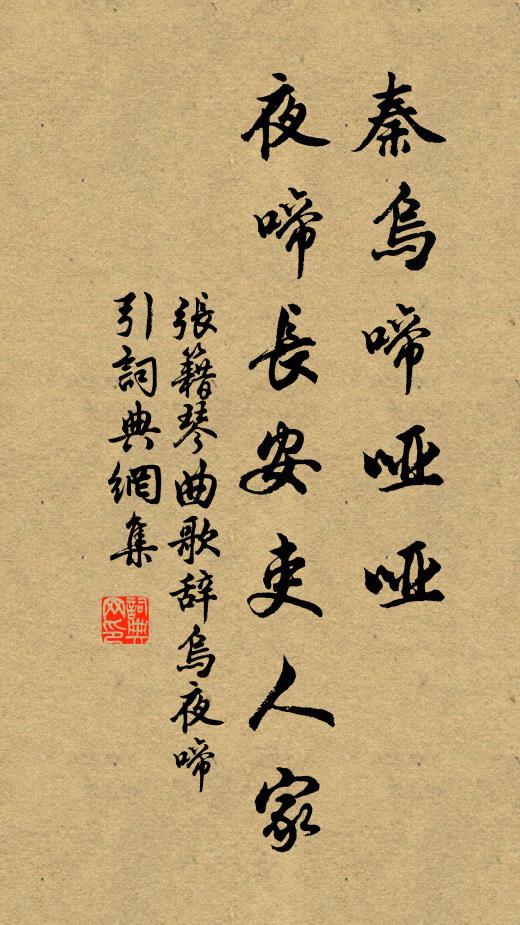 秦烏啼啞啞
夜啼長安吏人家
張籍琴曲歌辞烏夜啼
引詞典網集
詞典
网印